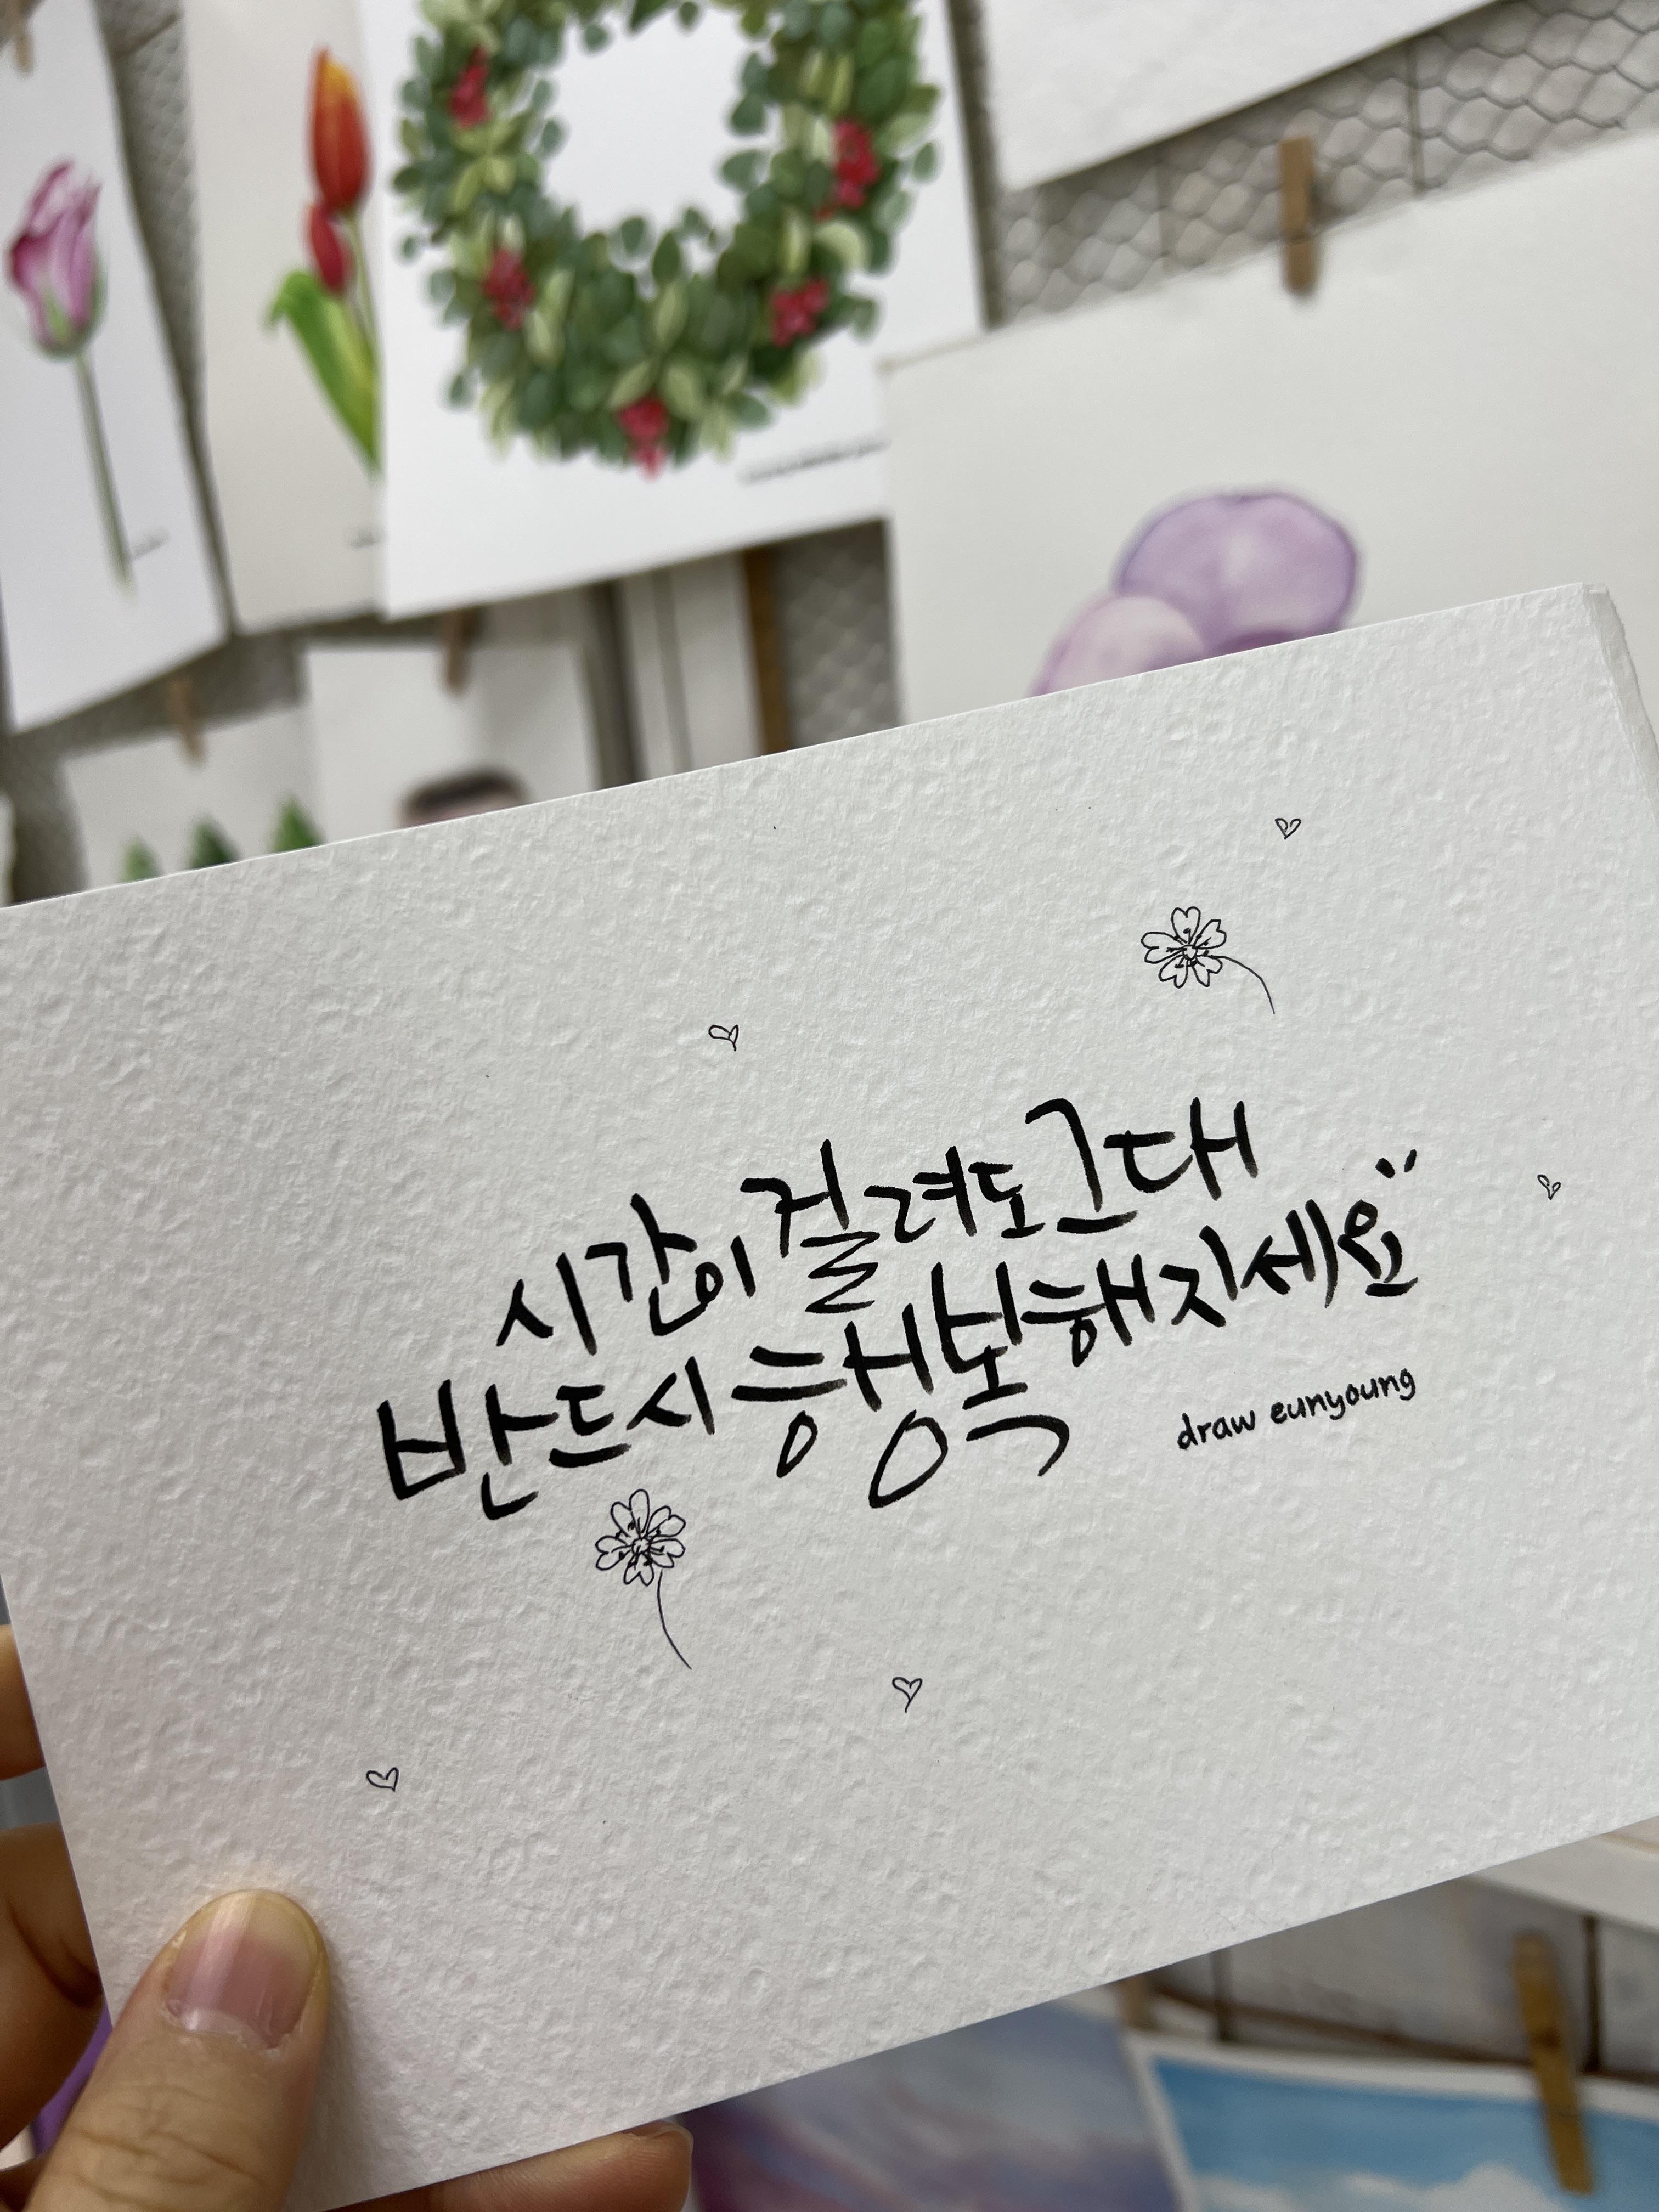 시간이 걸려도 그대
반드시 행복해지세요
draw eunyoung